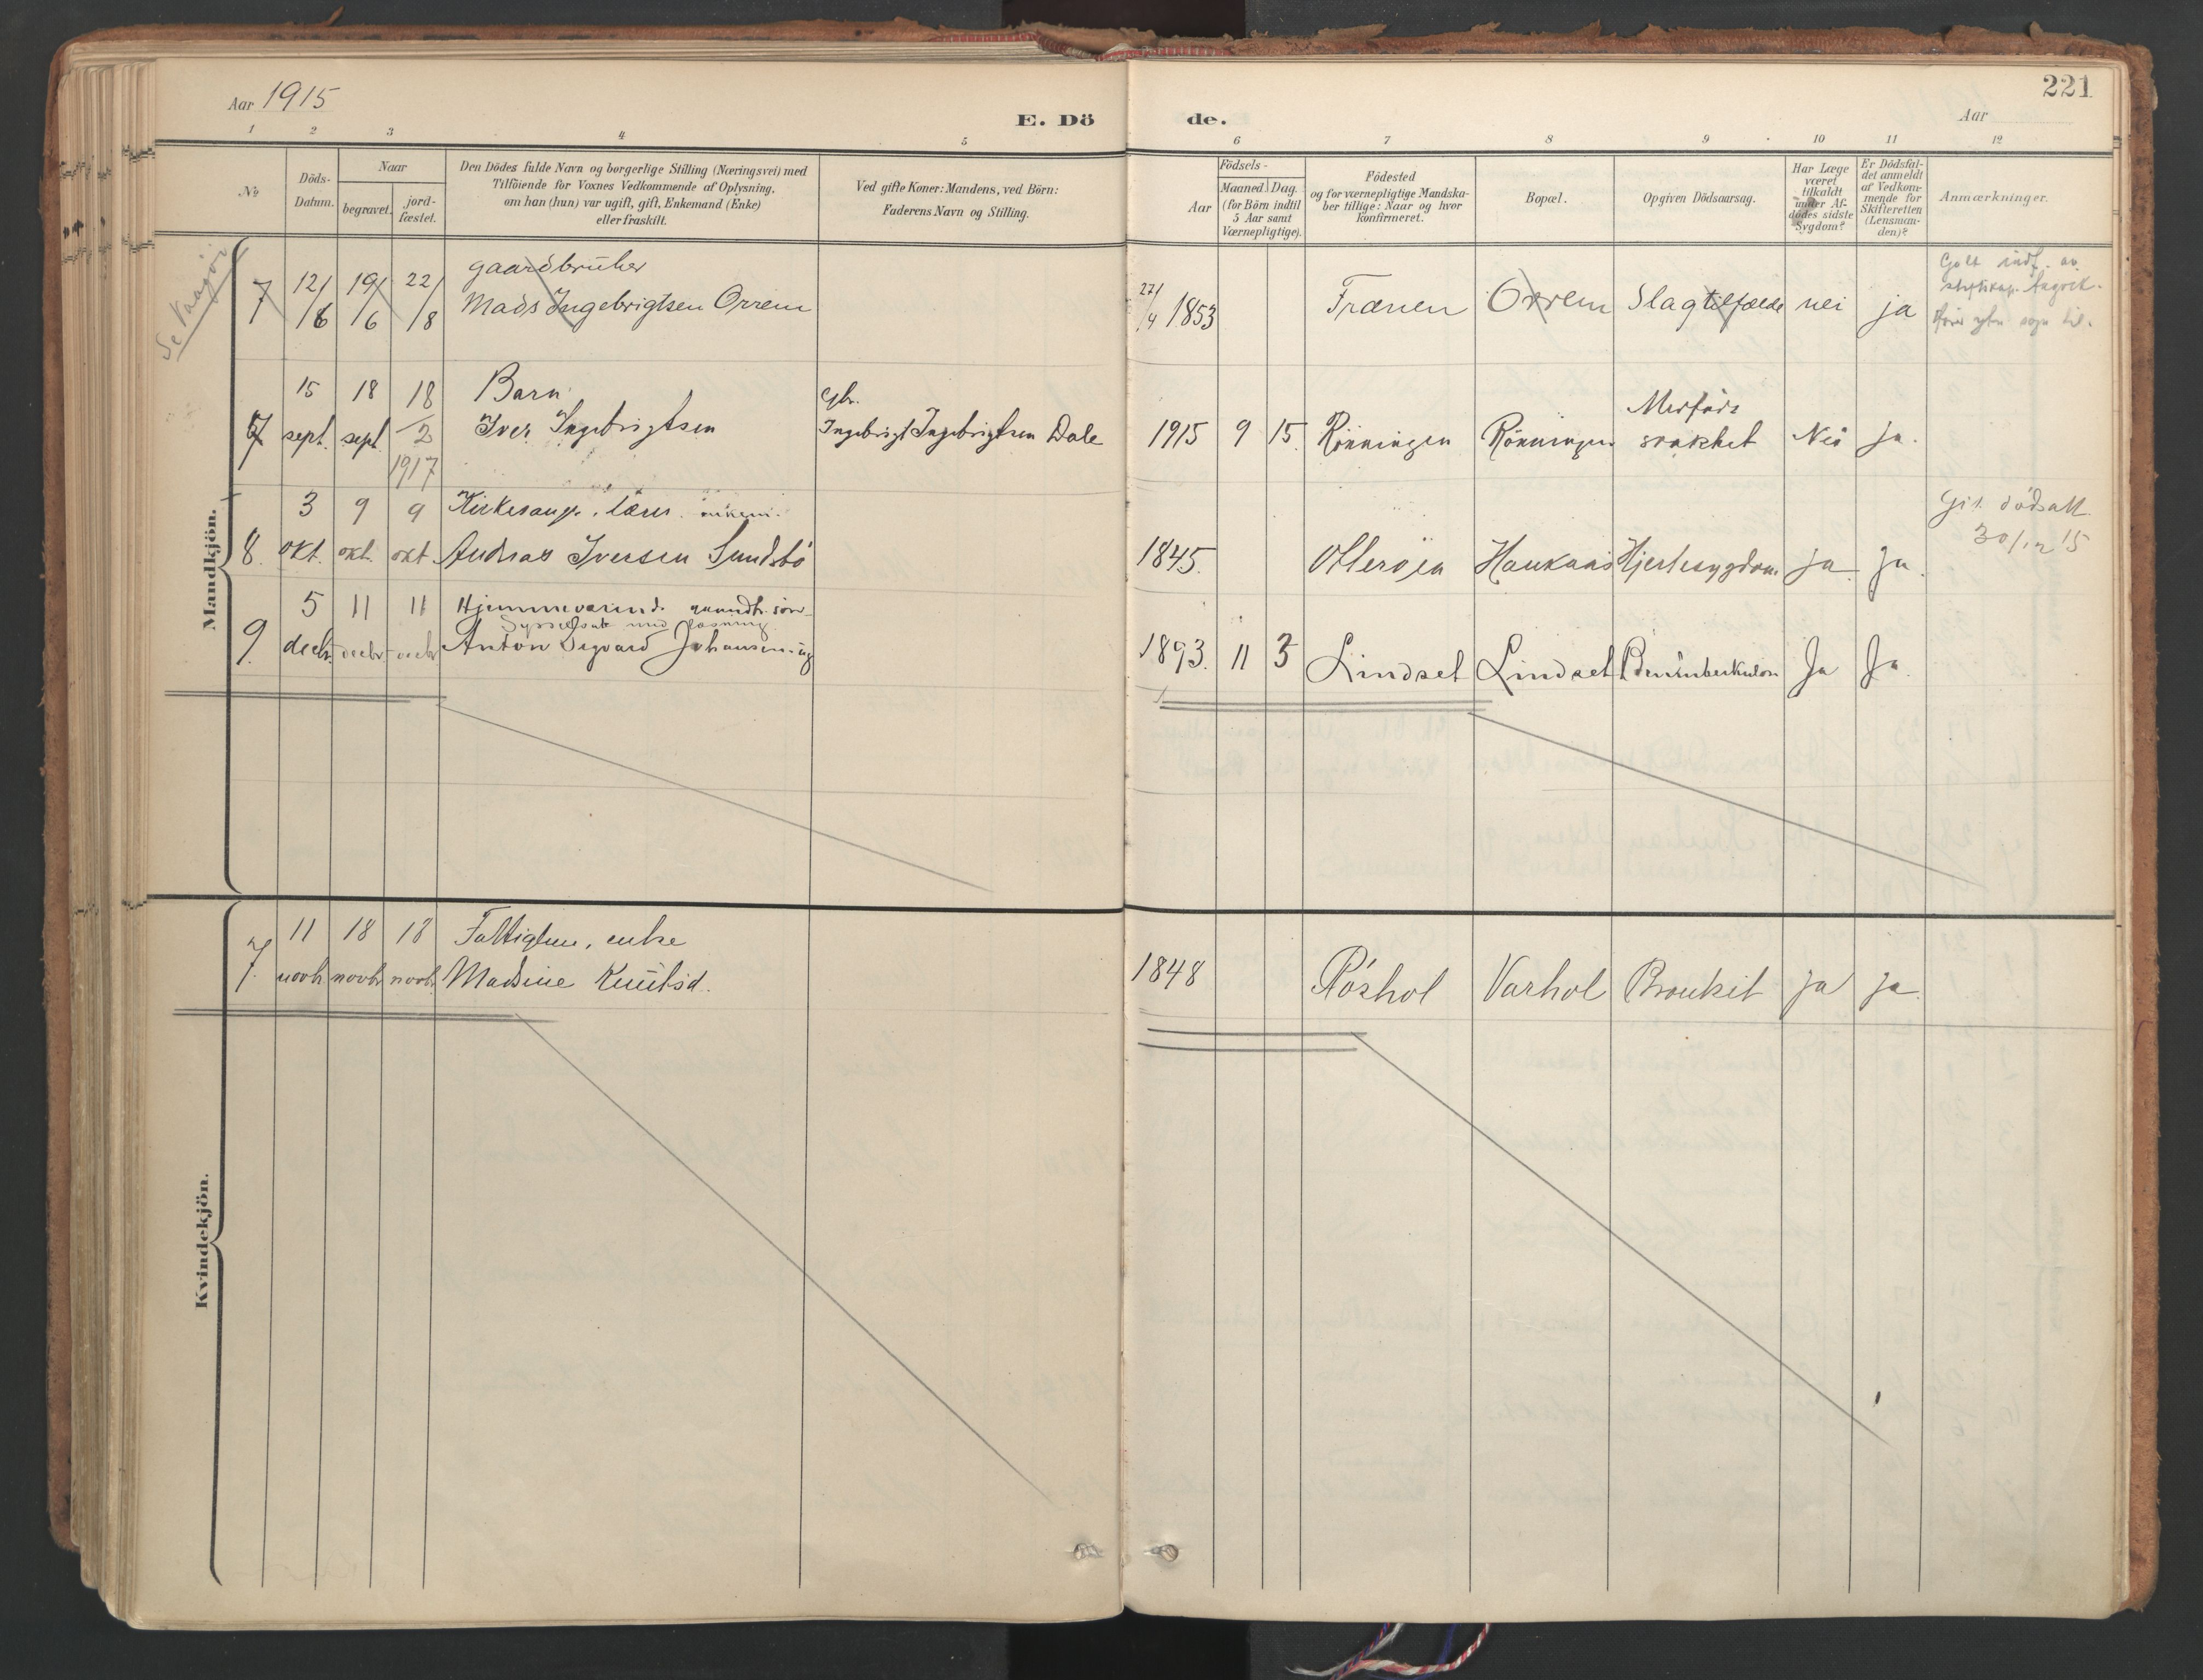 Aar 1915
E. Dö
de.
221
Aar
1 2 3 4 5 6 7 8 9 10 11 12
No
Döds-
Datum.
Naar
begravet.
jord-
fæstet.
Den Dödes fulde Navn og borgerlige Stilling (Næringsvei) med
Tilföiende for Voxnes Vedkommende af Oplysning,
om han (hun) var ugift, gift, Enkemand (Enke)
eller fraskilt.
Ved gifte Koner: Mandens, ved Börn:
Faderens Navn og Stilling.
Födsels-
Aar
Maaned. Dag.
(for Börn indtil
5 Aar samt
Værnepligtige).
Födested
og for værnepligtige Mandska-
ber tillige: Naar og hvor
konfirmeret.
Bopæl.
Opgiven Dödsaarsag.
Har Læge
været
tilkaldt
under Af-
dödes sidste
Sygdom?
Er Dödsfal-
det anmeldt
af Vedkom-
mende for
Skifteretten
(Lensman-
den)?
Anmærkninger.
Mandkjön.
7 12/6 19/6 22/8 gaardbruker
Mads Ingebrigtsen Orrem
27/4 1853 Frænen Orrem Slagtilfælde nei ja
7 15 sept. 18 sept. 18/2 1917
Barn
Iver Ingebrigtsen
Gbr.
Ingebrigt Ingebrigtsen Dale
1915 9 15. Rönningen Rönningen
svakhet Nei ja.
8. 3 okt. 9 okt. 9 okt
Kirkesang. lærer.
Andreas Iversen Sundsbö
1845. Otteröen Haukaas Hjertesygdom ja. ja.
30/12 15
9. 5 decbr. 11 decbr. 11 decbr
Anton Sigvard Johansen
1893. 11 3 Lindset Lindset Ja Ja.
Kvindekjön.
7. 11 novb. 18 novb. 18 novb.
Fattiglem, enke
Madsine Knutsd.
1848 Röshol Varhol Bronkit ja ja